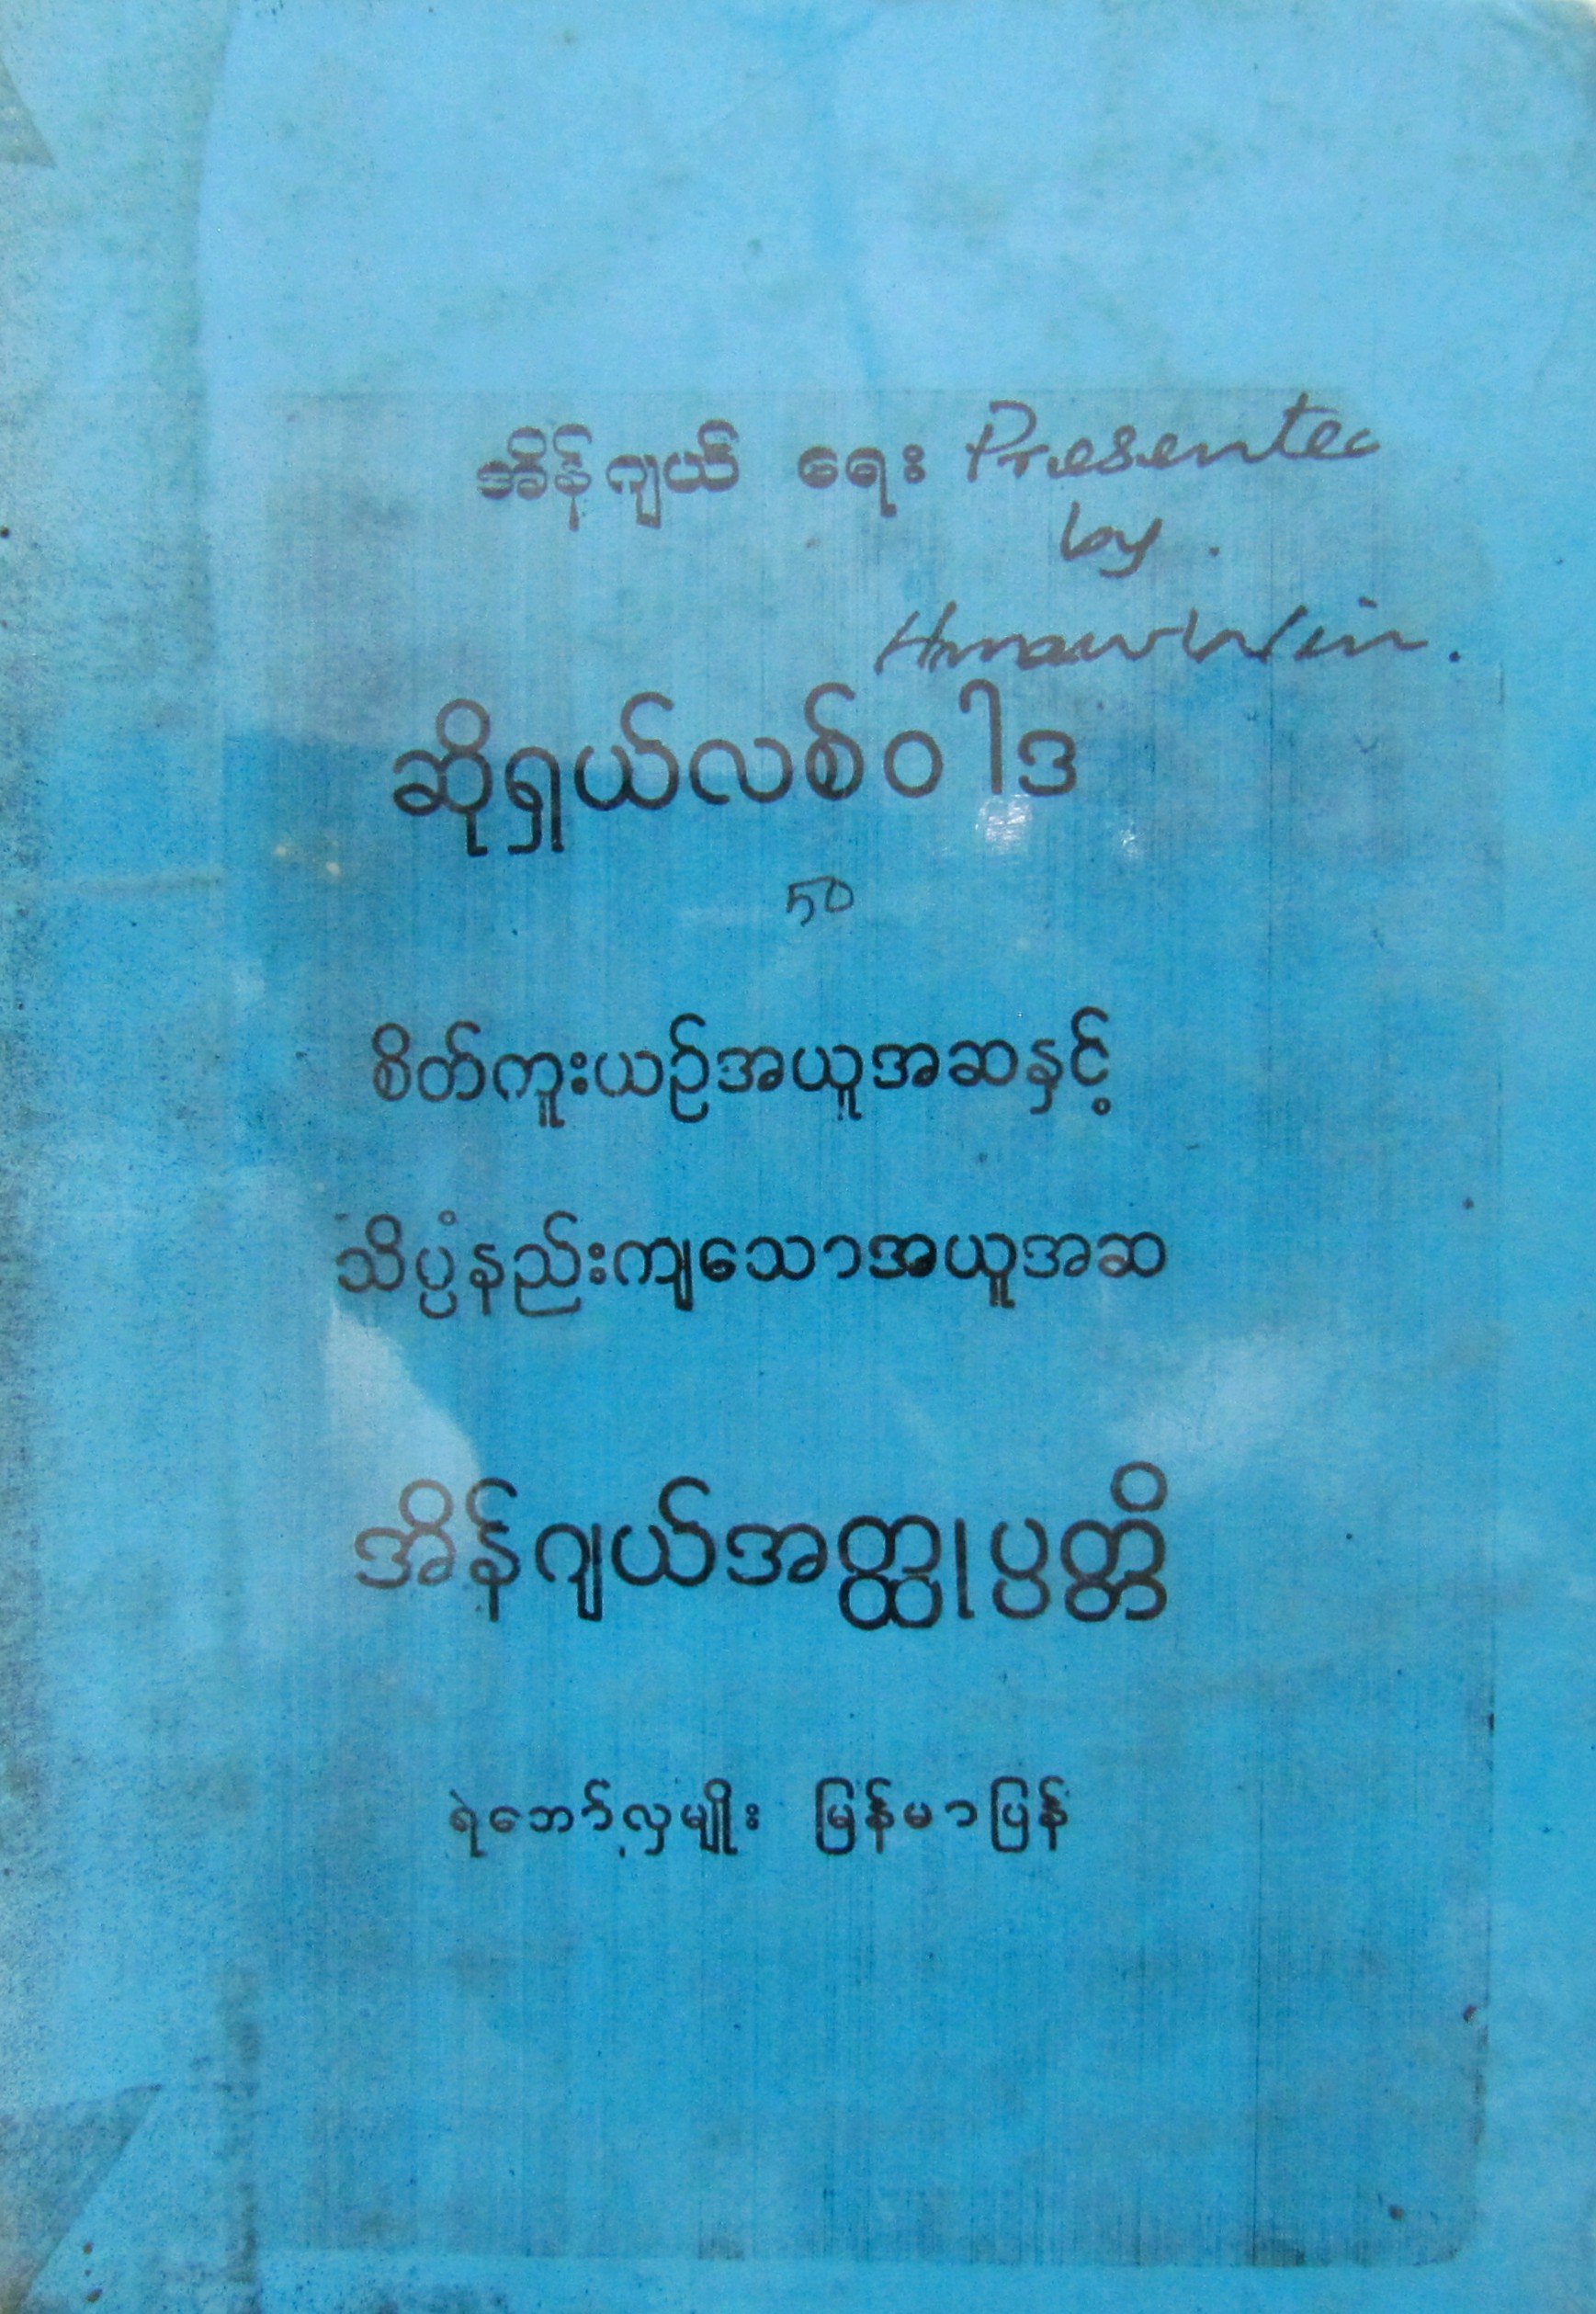 အိန်ဂျယ် ရေး Presented
by.
Hmaw Win.
ဆိုရှယ်လစ်ဝါဒ
50
စိတ်ကူးယဉ်အယူအဆနှင့်
သိပ္ပံနည်းကျသောအယူအဆ
အိန်ဂျယ်အတ္ထုပ္ပတ္တိ
ရဲဘော်လှမျိုး မြန်မာပြန်